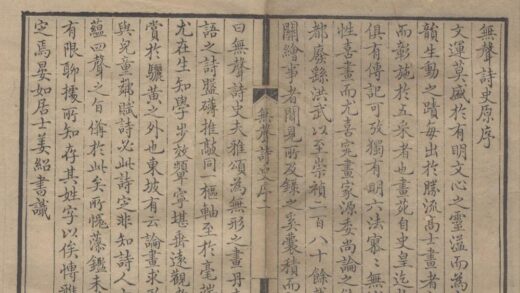 無聲詩史原序
文運莫盛於有明文心之靈溢而為
韻生動之蹟毋出於勝流高士畫者
而彰施於五采者也書苑自史皇迄
俱有傳記可攷獨有明六法寥寥無
性喜畫而尤喜究畫家源委尚論之
都廢縣洪武以至崇禎二百八十餘
關繪事者聞見所及錄之奚囊積而
無聲詩史序 一
曰無聲詩史夫雅頌為無形之畫丹
語之詩盤礴推敲同一樞軸至於毫
尤在生知學步放顰寧堪垂遠觀
賞於驪黃之外也東坡有云論畫求
與兒童鄰賦詩必此詩定非知詩人
蘊四聲之旨備於此矣所愧藻鑑未
有限聊據所知存其姓字以俟博雅
定焉晏如居士姜紹書識